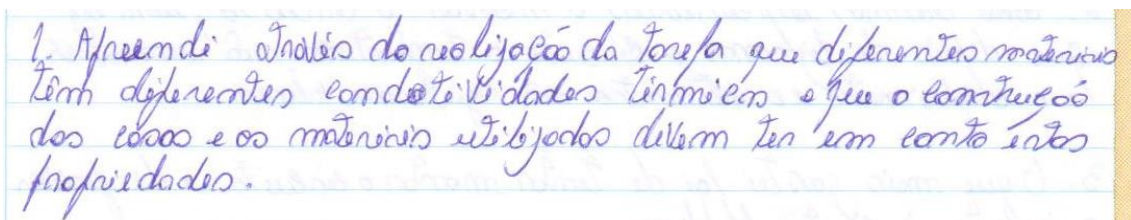 1. Aprendi através da realização da tarefa que diferentes materiais
têm diferentes condotividades térmicas e que a construção
das casas e os materiais utilizados devem ter em conta estas
propriedades.